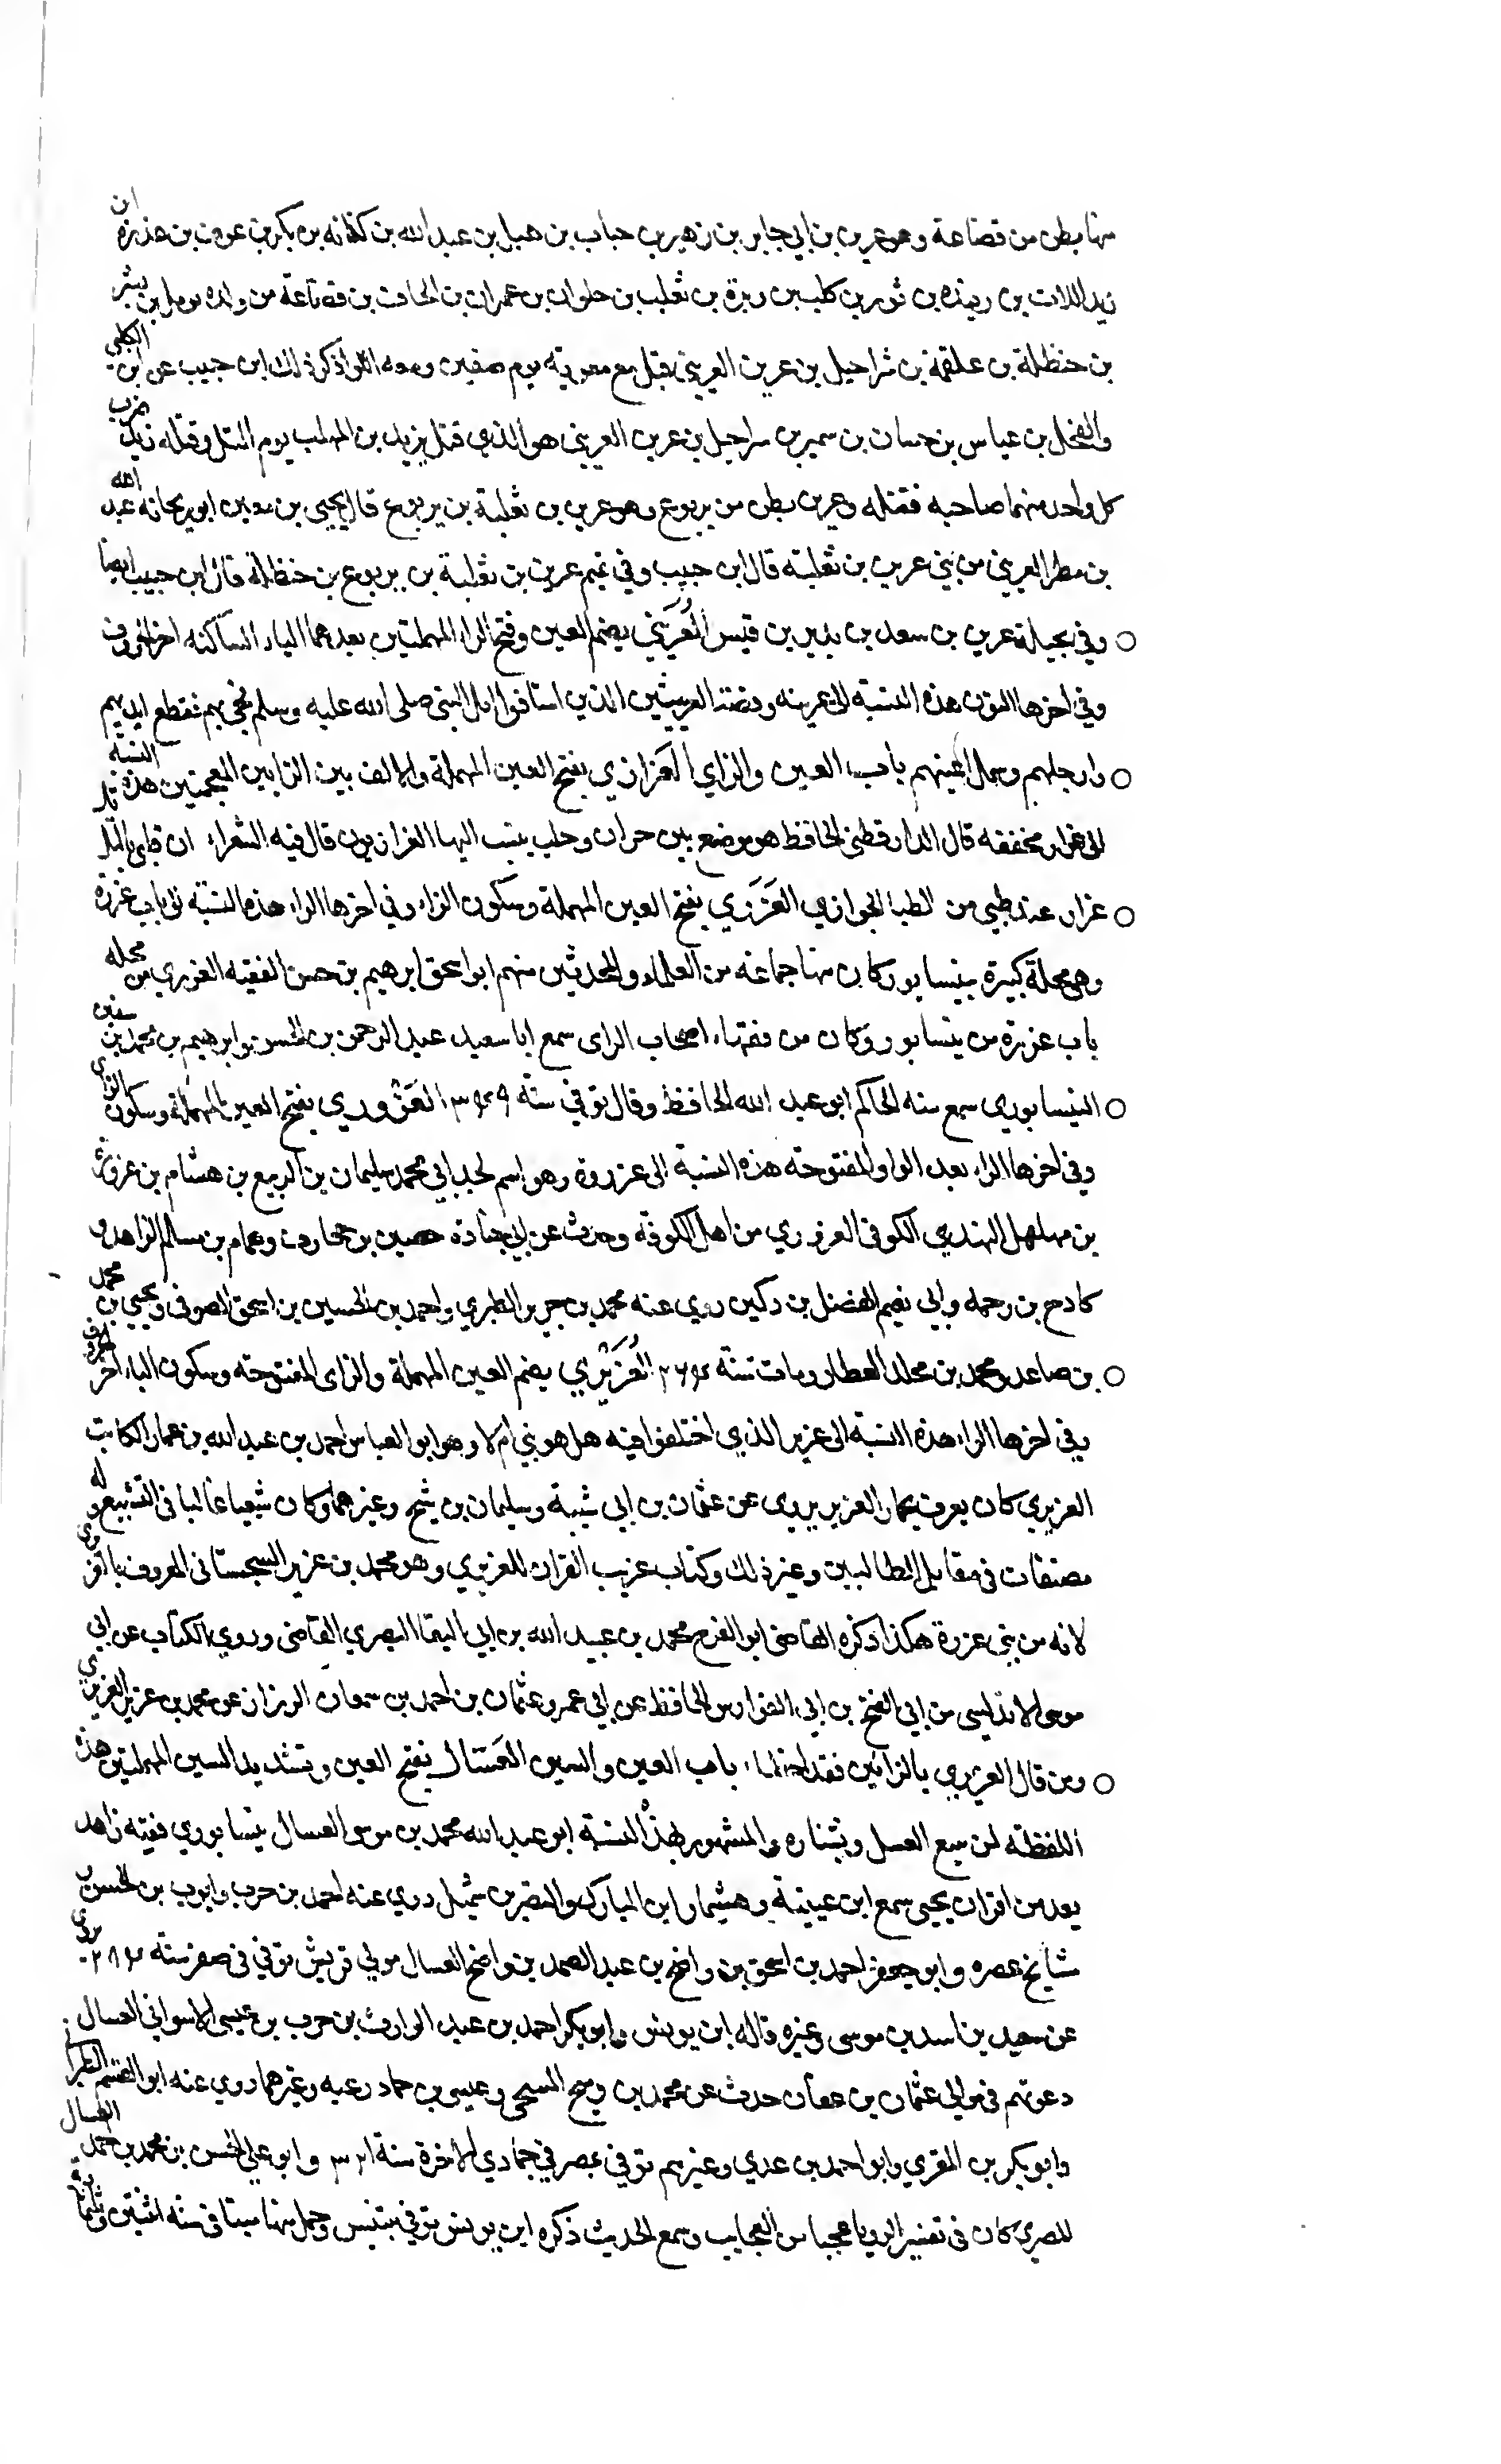 منها بطن من قضاعة وهو عرين بن ابي جابر بن زهير بن حباب بن هبل بن عبد الله بن كنانه بن بكر بن عوف بن عذرة ان
زيد اللات بن رفيده بن ثور بن كليب بن وبرة بن ثعلب بن حلوان بن عمران بن الحاف بن قضاعة من ولده نوفل بن بشر
بن حنظلة بن علقمة بن شراحيل بن عرين العريني قتل مع معوية يوم صفين ومعه اللوا ذكر ذلك ابن حبيب عن ابن الكلبي
والفحل بن عياس بن حسان بن سمير بن سراحيل بن عرين العريني هو الذي قتل يزيد بن المهلب يوم التل وقتله يزيد ضرب
كل واحد منهما صاحبه فقتله وعرين بطن من يربوع وهو عرين بن ثعلبة بن يربوع قال يحيى بن معين ابو ريحانه عبد الله
بن مطر العريني من بني عرين بن ثعلبة قال ابن حبيب وفي تميم عرين بن ثعلبة بن يربوع بن حنظلة قال ابن حبيب ايضا
وفي بجيلة عرين بن سعد بن نذير بن قيس العُرَيني بضم العين وفتح الرا المهملتين بعدهما الياء الساكنه اخر الحروف
وفي اخرها النون هذه النسبة الى عرينه وقصة العرينيين الذين استاقوا ابل النبي صلى الله عليه وسلم فجي بهم فقطع ايديهم
وارجلهم وسمل اعينهم باب العين والزاي العَزازي بفتح العين المهملة والالف بين الزايين المعجمتين هذه النسبة
الى عزاز مخففه قال الدارقطني الحافظ هو موضع بين حران وحلب ينسب اليها العزازيون قال فيه الشعراء ان قلبي بالتل تل
عزاز عند ظبي من الظبا الجوازي العَزَرَي بفتح العين المهملة وسكون الزاء وفي اخرها الراء هذه النسبة الى باب عزرة
وهي محلة كبيرة بنيسابور كان منها جماعه من العلماء والمحدثين منهم ابو اسحق ابرهيم بن حسن الفقيه العزري من محله
باب عزرة من نيسابور وكان من فقهاء اصحاب الراى سمع ابا سعيد عبد الرحمن بن الحسن وابرهيم بن محمد بن سفين
النيسابوري سمع منه الحاكم ابو عبد الله الحافظ وقال توفي سنة ٣٤٩ العَزْوري بفتح العين المهملة وسكون الزاي
وفي اخرها الراء بعد الواو المفتوحه هذه النسبة الى عزورة وهو اسم لجد ابي محمد سليمان بن الربيع بن هشام بن عزورة
بن مهلهل النهدي الكوفي العزوري من اهل الكوفة وحدث عن ابي جنادة حصين بن مخارق وهمام بن مسلم الزاهد و
كادح بن رحمه وابي نعيم الفضل بن دكين روى عنه محمد بن جرير الطبري واحمد بن الحسين بن اسحق الصوفي ويحيى بن محمد
بن صاعد ومحمد بن مخلد العطار ومات سنة ٢٧٤ العُزَيْري بضم العين المهملة والزاى المفتوحه وسكون الياء اخر الحروف
وفي اخرها الراء هذه النسبة الى عزير الذي اختلفوا فيه هل هو نبي ام لا وهو ابو العباس احمد بن عبد الله بن عمار الكاتب
العزيري كان يعرف بحمار العزير يروي عن عثمان بن ابي شيبة وسليمان بن شيخ وغيرهما وكان شيعيا غاليا في التشيع وله
مصنفات في مقاتل الطالبيين وغير ذلك وكتاب غريب القران للعزيري وهو محمد بن عزير السجستاني المعروف بالعزيري
لانه من بني عزرة هكذا ذكره القاضي ابو الفرج محمد بن عبيد الله بن ابي البقا البصري القاضي وروي الكتاب عن ابي
موسى الاندلسي من ابي الفتح بن ابي الفوارس الحافظ عن ابي عمرو عثمان بن احمد بن سمعان الرزاز عن محمد بن عزير العزيري
ومن قال العزيزي بالزائين فقد اخطاء باب العين والسين العَسّال بفتح العين وتشديد السين المهملتين هذه
اللفظة لمن يبيع العسل ويشتاره والمشهور بهذه النسبة ابو عبد الله محمد بن موسى العسال نيسابوري فقيه زاهد
يعد من اقران يحيى سمع ابن عيينة وهشيما وابن المبارك والنضر بن شميل روي عنه احمد بن حرب وايوب بن الحسن و
مشايخ عصره وابو جعفر احمد بن اسحق بن واضح بن عبد الصمد بن واضح العسال مولى قريش توفي في صفر سنة ٢٨٤ يروي
عن سعيد بن اسد بن موسى وغيره قاله ابن يونس وابو بكر احمد بن عبد الوارث بن جرير بن عيسى الاسواني العسال
دعوتهم في موالي عثمان بن عفان حدث عن محمد بن رمح المسيحي وعيسى بن حماد زغبه وغيرهما روي عنه ابو القسم الطبراني
وابو بكر بن المقري وابو احمد بن عدي وغيرهم توفي بمصر في جمادي الاخرة سنة ٣٢١ وابو علي الحسن بن محمد بن احمد العسال
المصري كان في تفسير الرويا عجبا من العجايب وسمع الحديث ذكره ابن يونس توفي بتنيس وحمل منها ميتا في سنه اثنتين وثلثماية